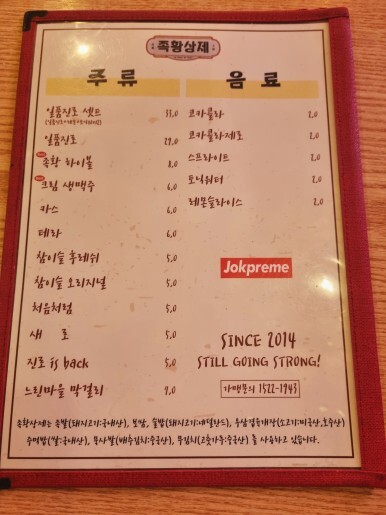 족황상제
주류 음료
일품진로 셋트 33.0
일품진로 29.0
족황 하이볼 8.0
크림 생맥주 6.0
카스 6.0
테라 6.0
참이슬 후레쉬 5.0
참이슬 오리지널 5.0
처음처럼 5.0
새로 5.0
진로 is back 5.0
느린마을 막걸리 9.0
코카콜라 2.0
코카콜라제로 2.0
스프라이트 2.0
토닉워터 2.0
레몬슬라이스 2.0
Jokpreme
SINCE 2014
STILL GOING STRONG!
가맹문의 1522-1943
족황상제는 족발(돼지고기:국내산), 보쌈, 술밥(돼지고기:네덜란드), 우삼겹육개장(소고기:미국산,호주산)
주먹밥(쌀:국내산), 무사발(배추김치:중국산), 무김치(고춧가루:중국산) 를 사용하고 있습니다.